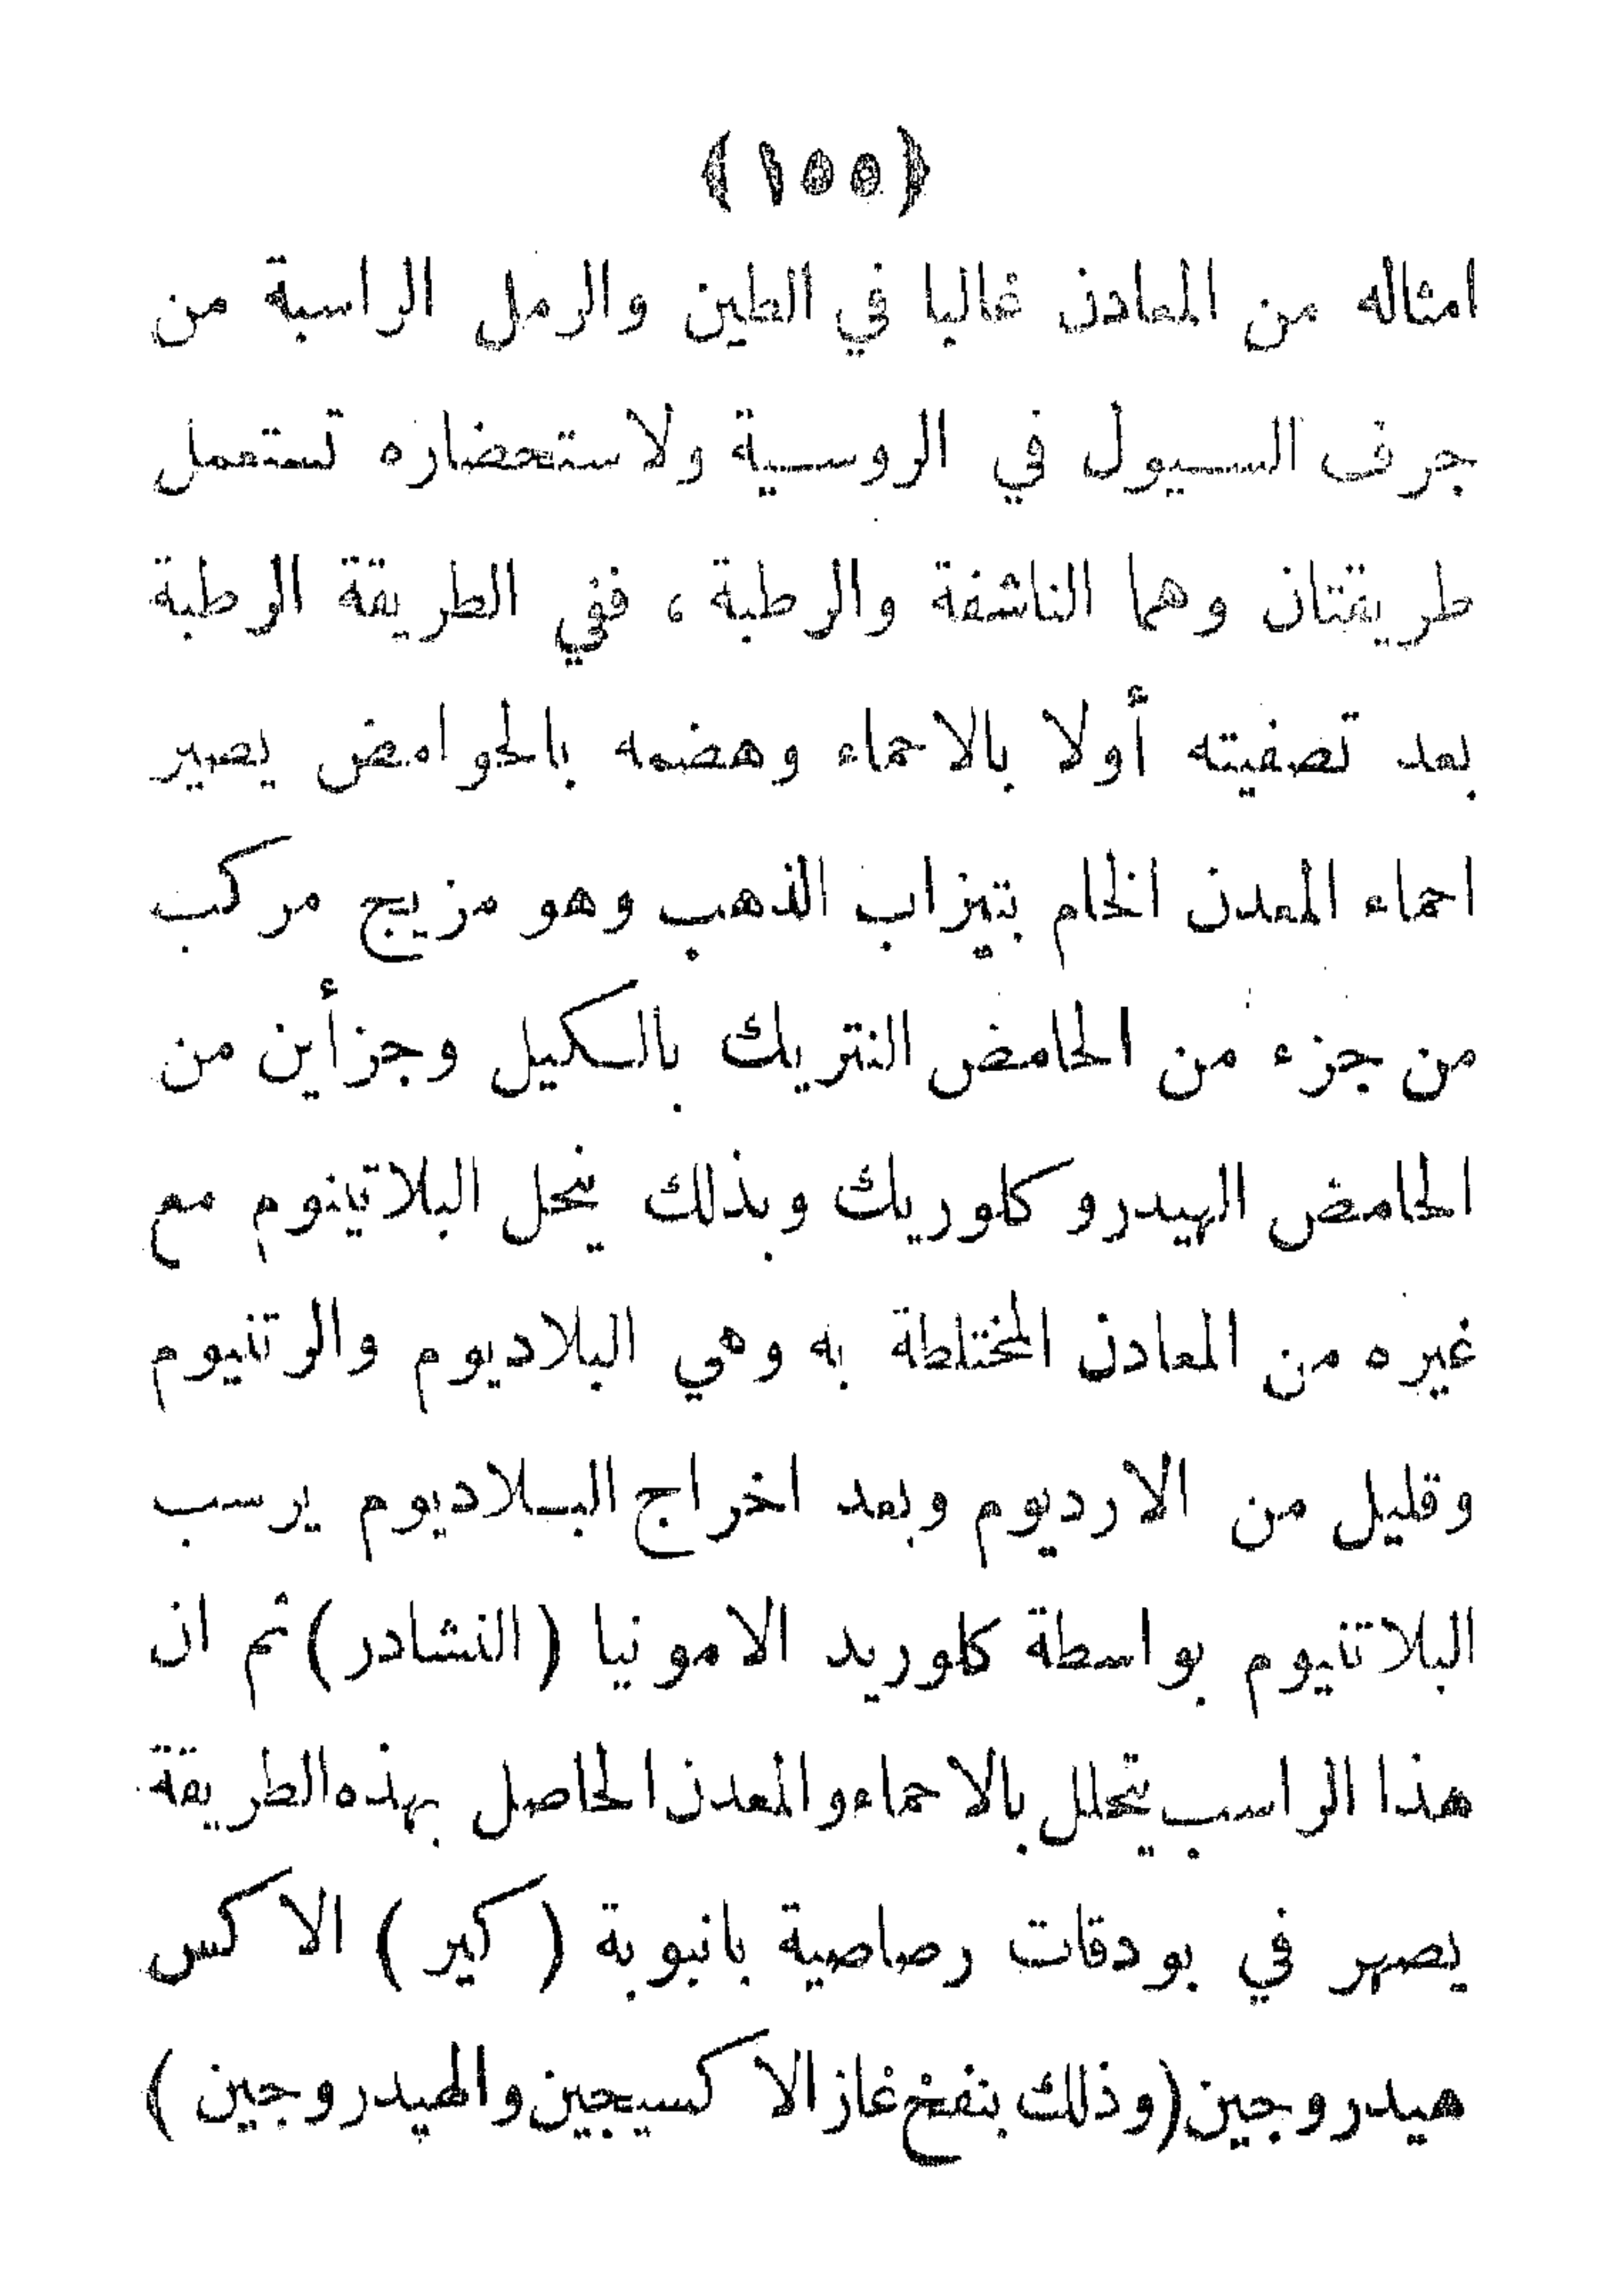 ﴿١٥٥﴾
امثاله من المعادن غالبا في الطين والرمل الراسبة من
جرف السيول في الروسية ولاستحضاره تستعمل
طريقتان وهما الناشفة والرطبة ، ففي الطريقة الرطبة
بعد تصفيته أولا بالاحماء وهضمه بالحوامض يصير
احماء المعدن الخام بتيزاب الذهب وهو مزيج مركب
من جزء من الحامض النتريك بالكيل وجزأين من
الحامض الهيدروكلوريك وبذلك ينحل البلاتينوم مع
غيره من المعادن المختلطة به وهي البلاديوم والرتنيوم
وقليل من الارديوم وبعد اخراج البلاديوم يرسب
البلاتنيوم بواسطة كلوريد الامونيا (النشادر) ثم ان
هذا الراسب يتحلل بالاحماء والمعدن الحاصل بهذه الطريقة
يصهر في بودقات رصاصية بانبوبة ( كير ) الاكس
هيدروجين (وذلك بنفخ غاز الاكسيجين والهيدروجين )